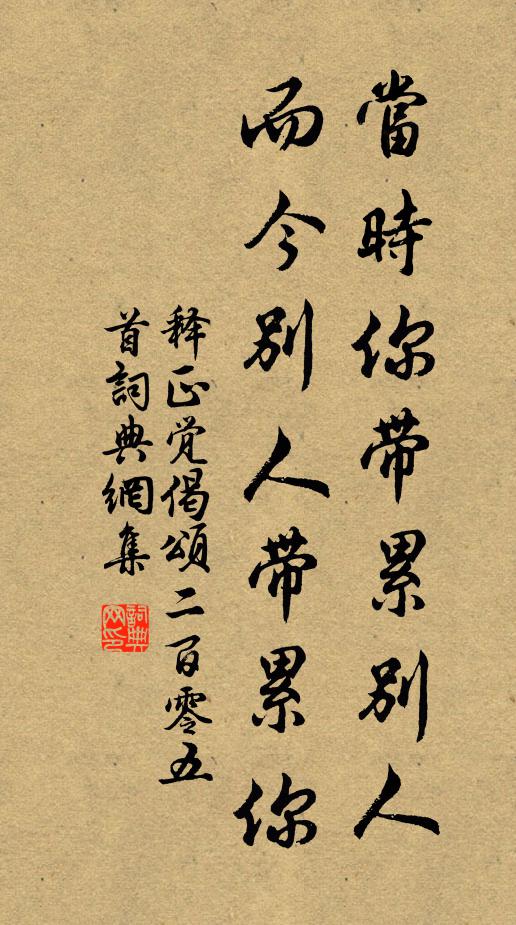 當時你带累別人
而今別人带累你
释正觉偈頌二百零五
首詞典網集
詞典網印